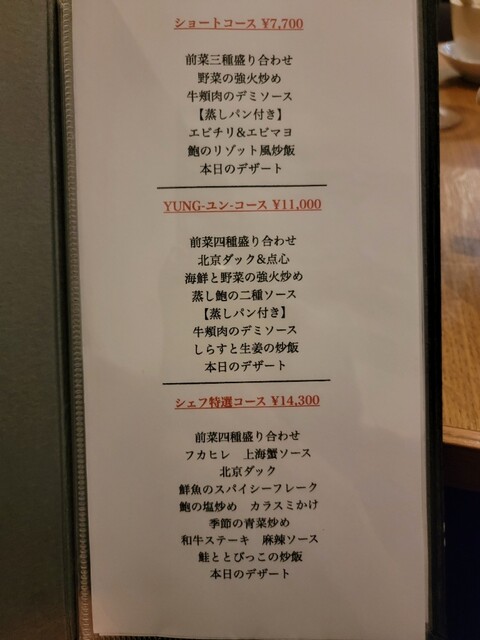 ショートコース ¥7,700
前菜三種盛り合わせ
野菜の強火炒め
牛頬肉のデミソース
【蒸しパン付き】
エビチリ&エビマヨ
鮑のリゾット風炒飯
本日のデザート
YUNG-ユン-コース ¥11,000
前菜四種盛り合わせ
北京ダック&点心
海鮮と野菜の強火炒め
蒸し鮑の二種ソース
【蒸しパン付き】
牛頬肉のデミソース
しらすと生姜の炒飯
本日のデザート
シェフ特選コース ¥14,300
前菜四種盛り合わせ
フカヒレ　上海蟹ソース
北京ダック
鮮魚のスパイシーフレーク
鮑の塩炒め　カラスミかけ
季節の青菜炒め
和牛ステーキ　麻辣ソース
鮭ととびっこの炒飯
本日のデザート